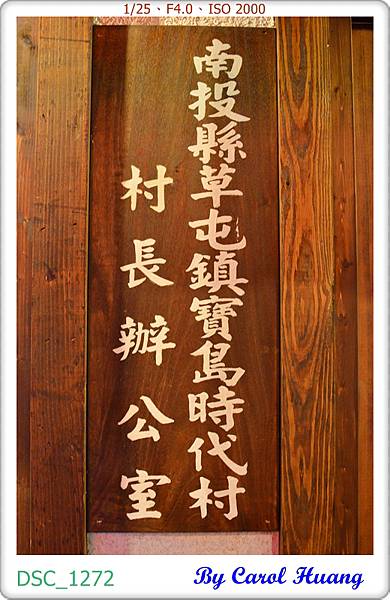 1/25、F4.0、ISO 2000
南投縣草屯鎮寶島時代村
村長辦公室
DSC_1272
By Carol Huang